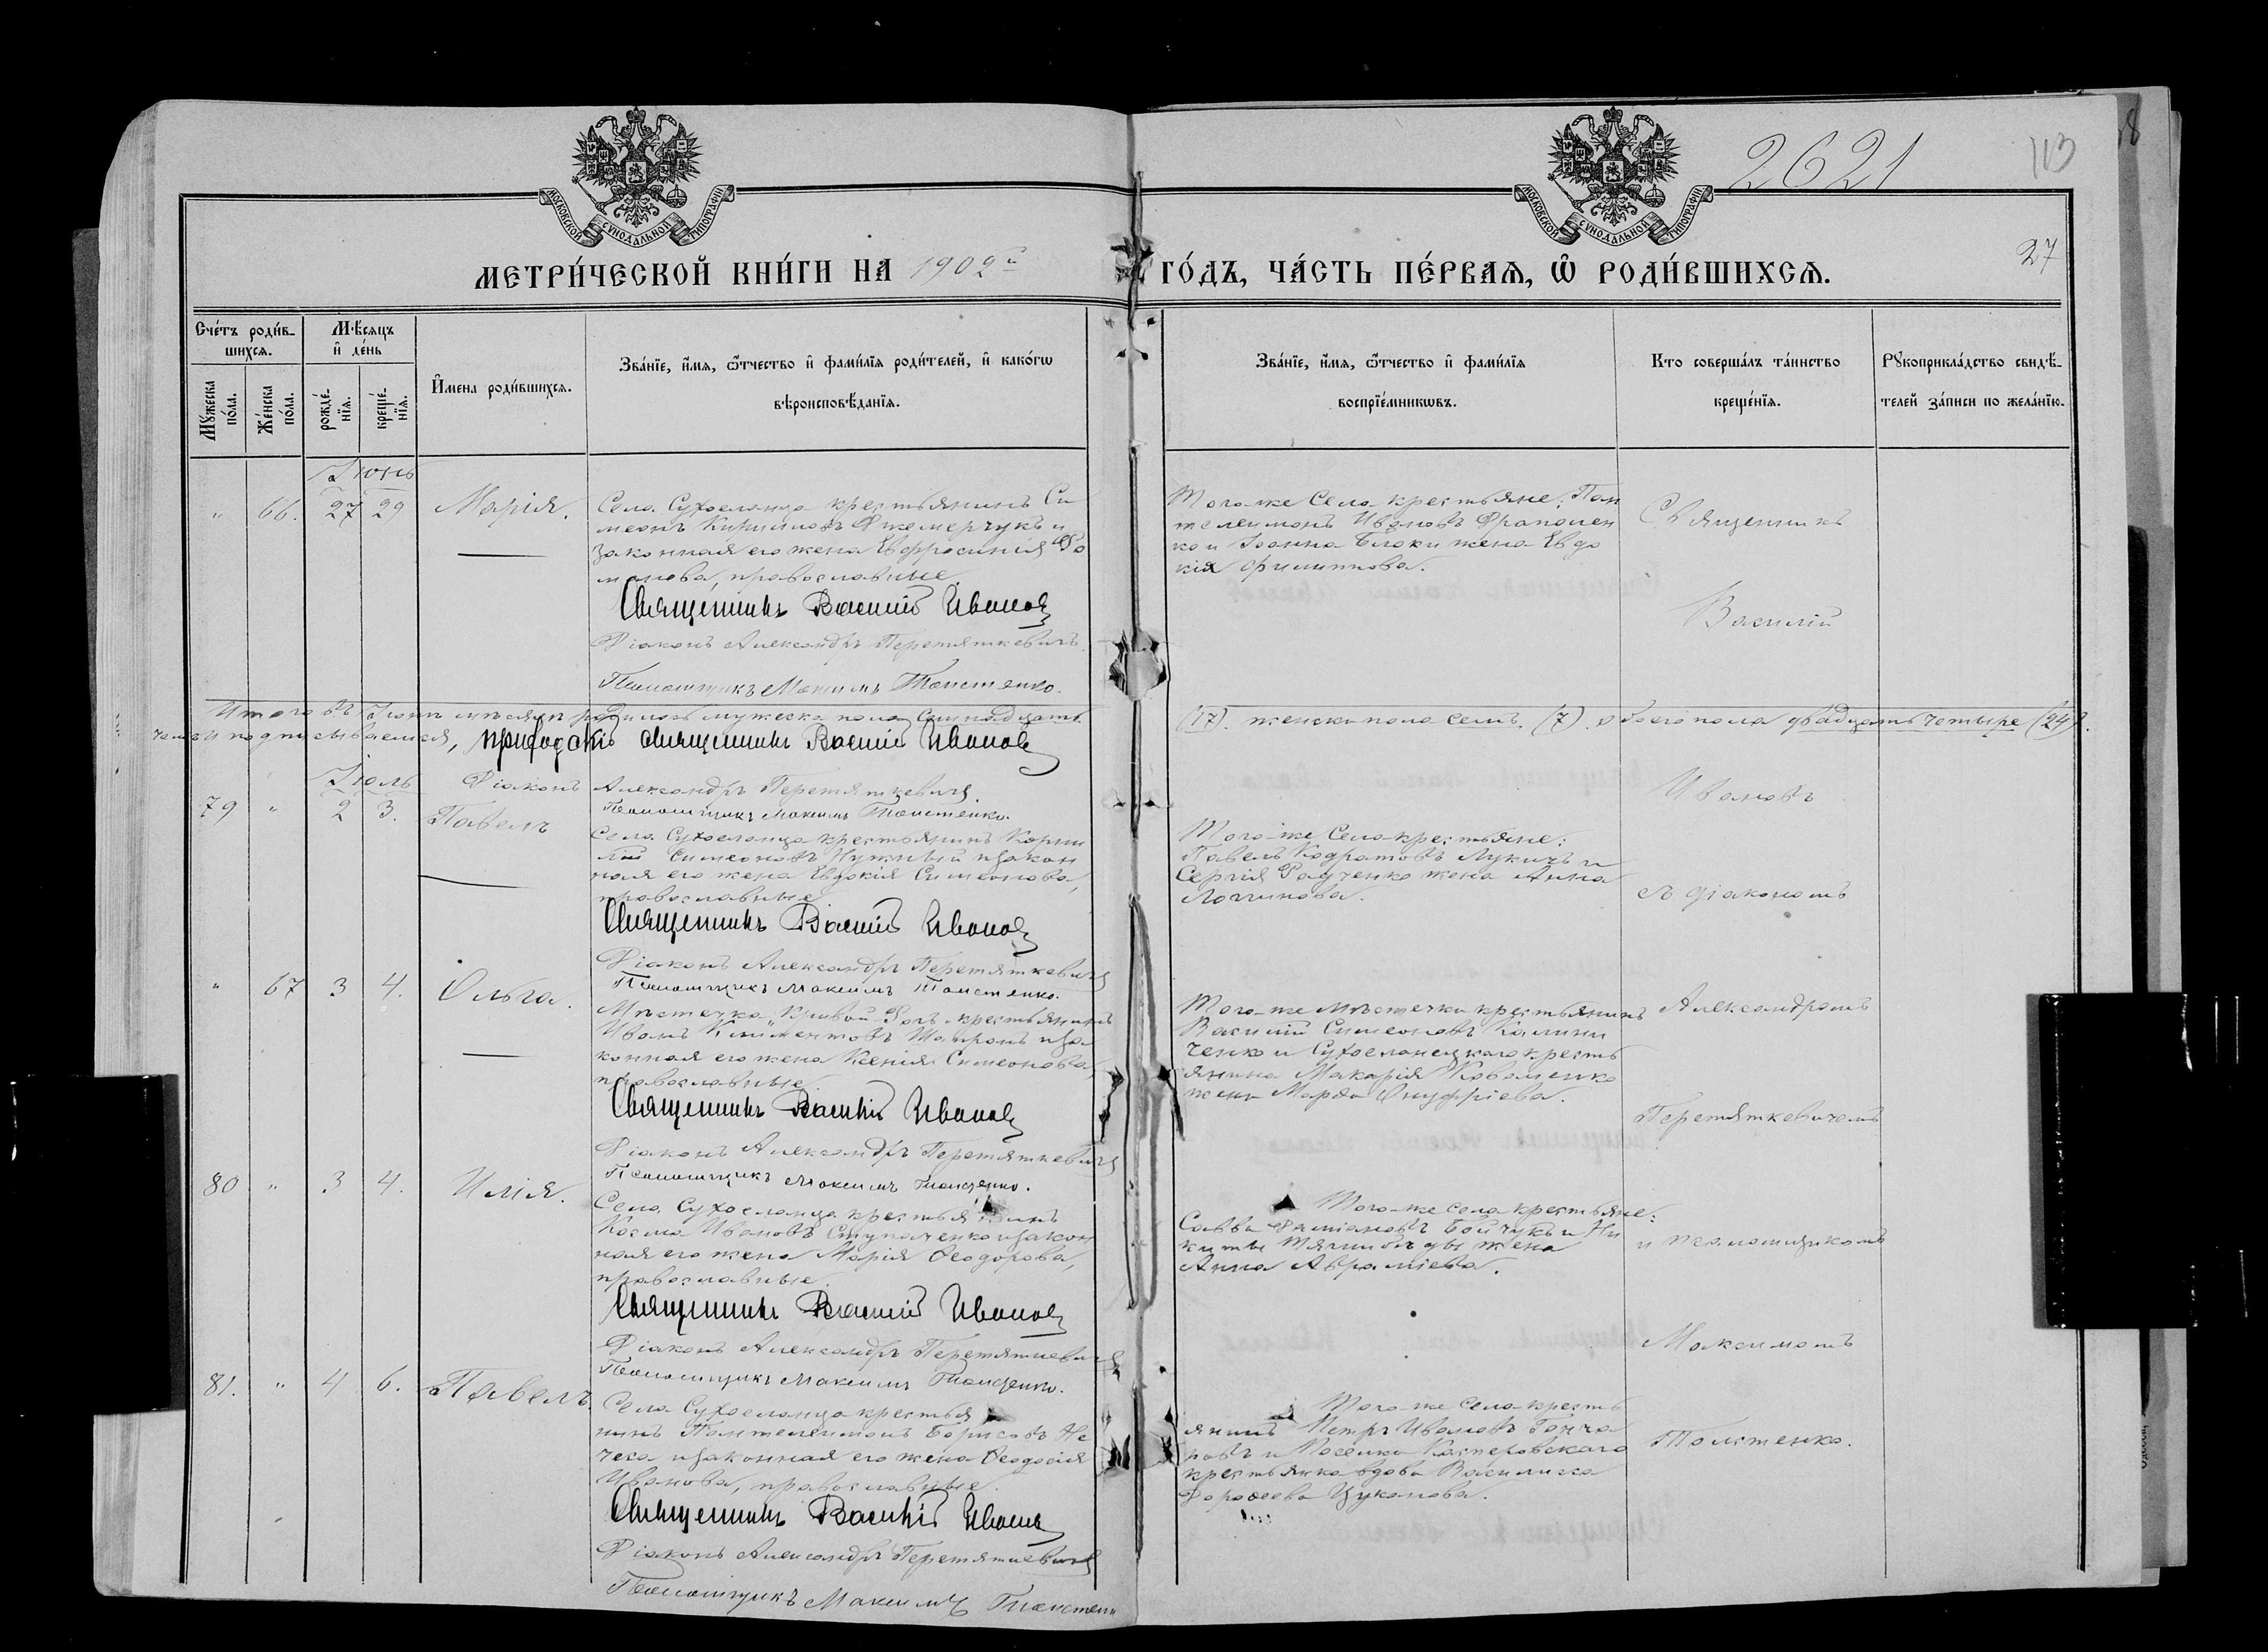 МОСКОВСКОЙ СѴНОДАЛЬНОЙ ТИПОГРАФІИ
МОСКОВСКОЙ СѴНОДАЛЬНОЙ ТИПОГРАФІИ
2621
113
27
МЕТРИ́ЧЕСКОЙ КНИ́ГИ НА 1902й ГО́ДЪ, ЧА́СТЬ ПЕ́РВАѦ, Ѽ РОДИ́ВШИХСѦ.
Сче́тъ роди́в-
шихсѧ.
Мꙋжеска по́ла.
Же́нска по́ла.
Мѣ́сѧцъ
и҆ де́нь
рожде́-
нїѧ.
креще́-
нїѧ.
И҆мена роди́вшихсѧ.
Зва́нїе, и҆́мѧ, ѻ҆́тчество и҆ фами́лїѧ роди́телей, и҆ како́гѡ
вѣроисповѣ́данїѧ.
Зва́нїе, и҆́мѧ, ѻ҆́тчество и҆ фами́лїѧ
воспрїе́мникѡвъ.
Кто соверша́лъ та́инство
креще́нїѧ.
Рꙋкоприкла́дство свидѣ́-
телей за́писи по жела́нїю.
Іюнь
" 66. 27 29 Марія.
Села Сухоеланца крестьянинъ Си
меонъ Кириловъ Джемерчукъ и
законная его жена Евфросинія Ро
манова, православные.
Священникъ Василій Ивановъ
Діаконъ Александръ Перетяткевичъ
Псаломщикъ Максимъ Толстенко.
Того-же Села крестьяне: Пан
телеимонъ Ивановъ
ко и Іоанна жена Евдо
кія Филиппова.
Итого въ Іюнѣ мѣсяцѣ родилось мужеска пола Семнадцать (17). женска пола семь (7). обоего пола двадцать четыре (24).
чемъ и подписываемся, приходскій священникъ Василій Ивановъ
Діаконъ Александръ Перетяткевичъ.
Псаломщикъ Максимъ Толстенко.
Іюль
79 " 2 3. Павелъ
Села Сухоеланца крестьянинъ Корни
лій Симеоновъ Нужный и закон
ная его жена Евдокія Симеонова,
православные
Священникъ Василій Ивановъ
Діаконъ Александръ Перетяткевичъ
Псаломщикъ Максимъ Толстенко.
Того-же Села крестьяне:
Павелъ Кодратовъ Лукичъ и
Сергія Радченко жена Анна
Логгинова.
" 67 3 4. Ольга.
Мѣстечка Кривой-Рогъ крестьянинъ
Иванъ Климентовъ и за
конная его жена Ксенія Симеонова,
православные.
Священникъ Василій Ивановъ
Діаконъ Александръ Перетяткевичъ
Псаломщикъ Максимъ Толстенко.
Того-же мѣстечка крестьянинъ
Василій Симеоновъ Калини
ченко и Сухоеланецкаго кресть
янина Макарія Коваленко
жена Марѳа Онуфріева.
80 " 3 4. Илія.
Села Сухоеланца крестьянинъ
Косма Ивановъ Ступаченко и закон
ная его жена Марія Ѳеодорова,
православные.
Священникъ Василій Ивановъ
Діаконъ Александръ Перетяткевичъ
Псаломщикъ Максимъ Толстенко.
Того-же села крестьяне:
Савва Даміановъ Бойчукъ и Ни
киты жена
Анна Авраміева.
81. " 4 6. Павелъ.
Села Сухоеланца крестья
нинъ Пантелеимонъ Борисовъ Не
чеса и законная его жена Ѳеодосія
Иванова, православные.
Священникъ Василій Ивановъ
Діаконъ Александръ Перетяткевичъ
Псаломщикъ Максимъ Толстенк
Того-же села кресть
янинъ Петръ Ивановъ Гонча
ровъ и Поселка Касперовскаго
крестьянка вдова Василиса
Дороѳеева Цуканова.
Священникъ
Василій
Ивановъ
съ діакономъ
Александромъ
Перетяткевичемъ
и псаломщикомъ
Максимомъ
Толстенко.